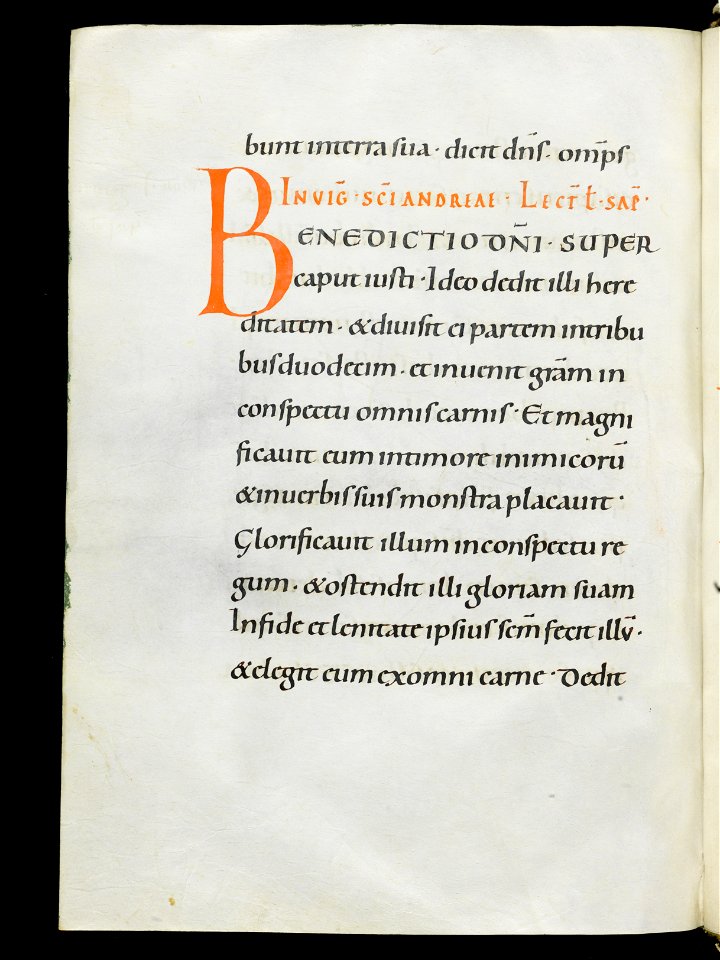 bunt interra sua · dicit dn̄s · om̄ps
IN VIG̅ · SC̅I ANDREAE · LECT̅ Ł · SAP̅ ·
BENEDICTIO DN̄I · SUPER
caput iusti · Ideo dedit illi here
ditatem · &diuisit ei partem intribu
busduodecim · et inuenit gr̄am in
conspectu omnis carnis · Et magni
ficauit eum intimore inimicorū
&inuerbis suis monstra placauit ·
Glorificauit illum inconspectu re
gum · &ostendit illi gloriam suam
Infide et lenitate ipsius sc̄m fecit illū ·
&elegit eum exomni carne · Dedit